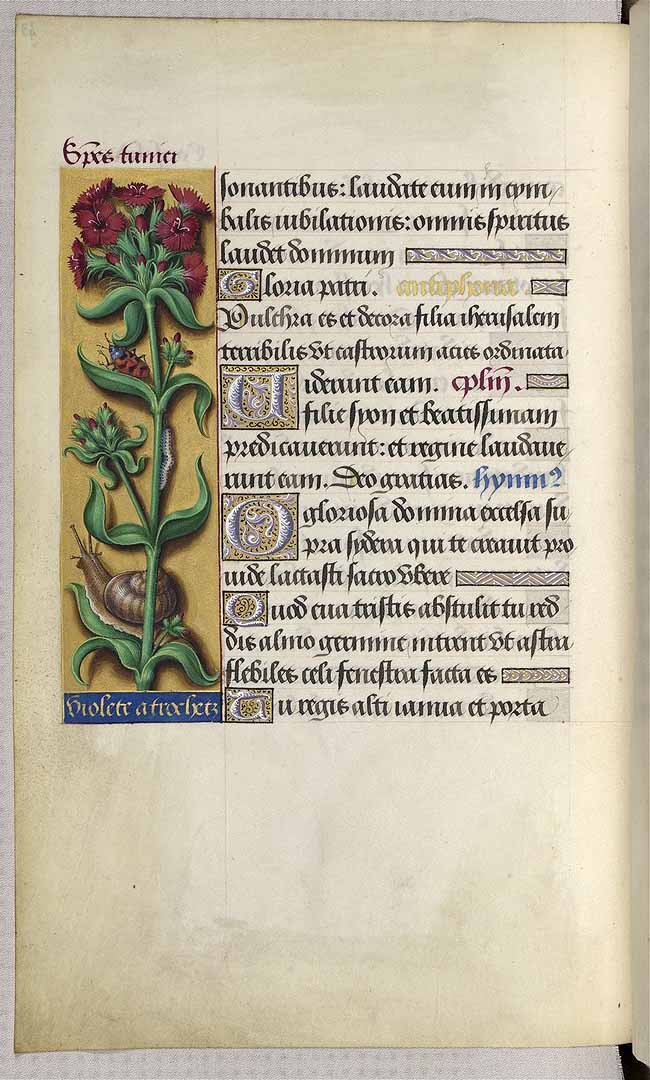 Spēs tunici
sonantibus: laudate eum in cym
balis iubilationis: omnis spiritus
laudet dominum
Gloria patri. antiphona
Pulchra es et decora filia iherusalem
terribilis vt castrorum acies ordinata
Uiderunt eam. cplm̄.
filie syon et beatissimam
predicauerunt: et regine laudaue
runt eam. Deo gratias. hymnꝰ
O gloriosa domina excelsa su
pra sydera qui te creauit pro
uide lactasti sacro vbere
Quod eua tristis abstulit tu red
dis almo germine intrent vt astra
flebiles celi fenestra facta es
Tu regis alti ianua et porta
Violete a trochetz